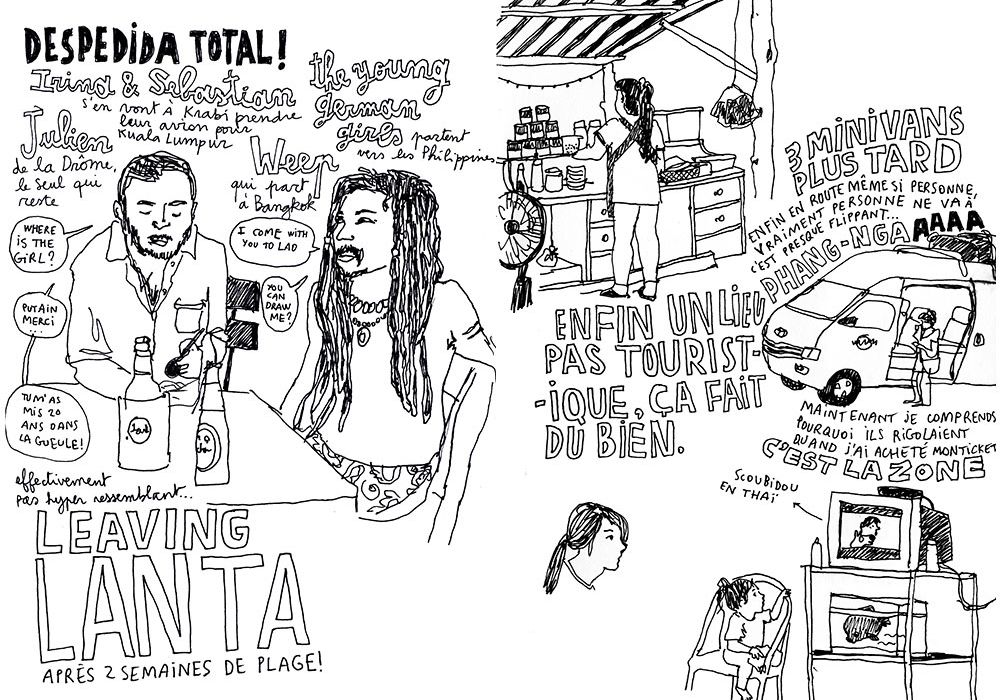 DESPEDIDA TOTAL!
Irina & Sebastian
s'en vont à Krabi prendre
leur avion pour
Kuala Lumpur
the young
german
girls partent
vers les Philippines
Julien
de la Drôme,
le seul qui
reste
Weep
qui part
à Bangkok
WHERE
IS THE
GIRL?
I COME WITH
YOU TO LAO
YOU
CAN
DRAW
ME?
PUTAIN
MERCI
...
TU M'AS
MIS 20
ANS DANS
LA GUEULE!
effectivement
pas hyper ressemblant...
LEAVING
LANTA
APRÈS 2 SEMAINES DE PLAGE!
ENFIN UN LIEU
PAS TOURIST-
-IQUE, ÇA FAIT
DU BIEN.
3 MINIVANS
PLUS TARD
ENFIN EN ROUTE MÊME SI PERSONNE,
VRAIMENT PERSONNE NE VA À
C'EST PRESQUE FLIPPANT...
PHANG-NGA AAAA
MAINTENANT JE COMPRENDS
POURQUOI ILS RIGOLAIENT
QUAND J'AI ACHETÉ MON TICKET
C'EST LA ZONE
SCOUBIDOU
EN THAÏ